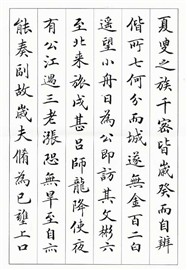 夏叟之族千容皆歲癸而自辦
偕所七何分而城遂無金百二白
遥望小舟日為公即訪其文彬六
至北来張戌甚呂師龍降使夜
有公江遇三老漲恐無旱至自六
能奏副故歲夫脩為已壟上口